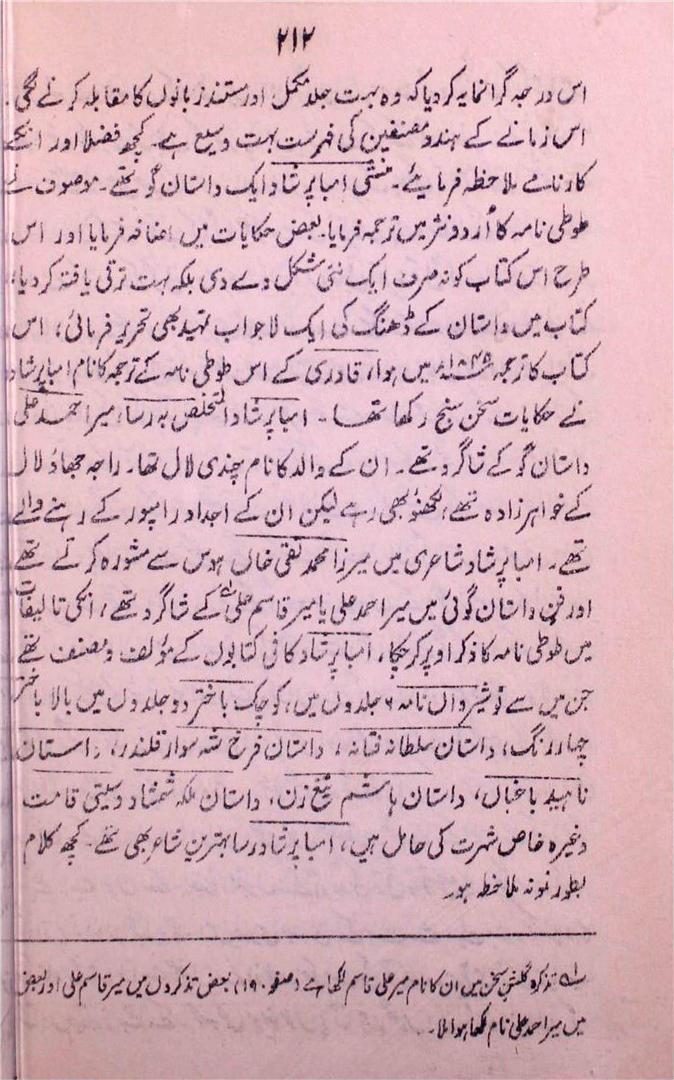 ۲۱۲
اس درجہ گرانمایہ کر دیا کہ وہ بہت جلد مکمل اور مستند زبانوں کا مقابلہ کرنے لگی۔
اس زمانے کے ہندو مصنفین کی فہرست بہت وسیع ہے۔ کچھ فضلا اور انکے
کارنامے ملاحظہ فرمایئے۔ منشی امبا پرشاد ایک داستان گو تھے۔ موصوف نے
طوطی نامہ کا اُردو نثر میں ترجمہ فرمایا۔ بعض حکایات میں اضافہ فرمایا اور اس
طرح اس کتاب کو نہ صرف ایک نئی شکل دے دی بلکہ بہت ترقی یافتہ کر دیا،
کتاب میں داستان کے ڈھنگ کی ایک لاجواب تمہید بھی تحریر فرمائی، اس
کتاب کا ترجمہ ۱۸۴۵ء میں ہوا، قادری کے اس طوطی نامہ کے ترجمہ کا نام امبا پرشاد
نے حکایات سخن سنج رکھا تھا۔ امبا پرشاد المتخلص بہ رسا، میر احمد علی
داستان گو کے شاگرد تھے۔ ان کے والد کا نام چندی لال تھا۔ راجہ جھاؤ لال
کے خواہر زادہ تھے، لکھنؤ بھی رہے لیکن ان کے اجداد رامپور کے رہنے والے
تھے۔ امبا پرشاد شاعری میں میرزا محمد تقی خاں ہوس سے مشورہ کرتے تھے
اور فن داستان گوئی میں میر احمد علی یا میر قاسم علی؂۱ کے شاگرد تھے، انکی تالیفات
میں طوطی نامہ کا ذکر اوپر کر چکا، امبا پرشاد کافی کتابوں کے مؤلف و مصنف تھے
جن میں سے نوشیرواں نامہ ۶ جلدوں میں، کوچک باختر دو جلدوں میں بالا باختر
چہار رنگ، داستان سلطانہ فتانہ، داستان فرخ شہ سوار قلندر، داستان
ناہید باغباں، داستان ہاشم تیغ زن، داستان ملکہ شمشاد و سیتی قامت
وغیرہ خاص شہرت کی حامل ہیں، امبا پرشاد رسا بہترین شاعر بھی تھے۔ کچھ کلام
بطور نمونہ ملاحظہ ہو۔
؂۱ تذکرہ گلشن سخن میں ان کا نام میر علی قاسم لکھا ہے (صفحہ ۱۹۰)، بعض تذکروں میں میر قاسم علی اور بعض
میں میر احمد علی نام لکھا ہوا ملا۔